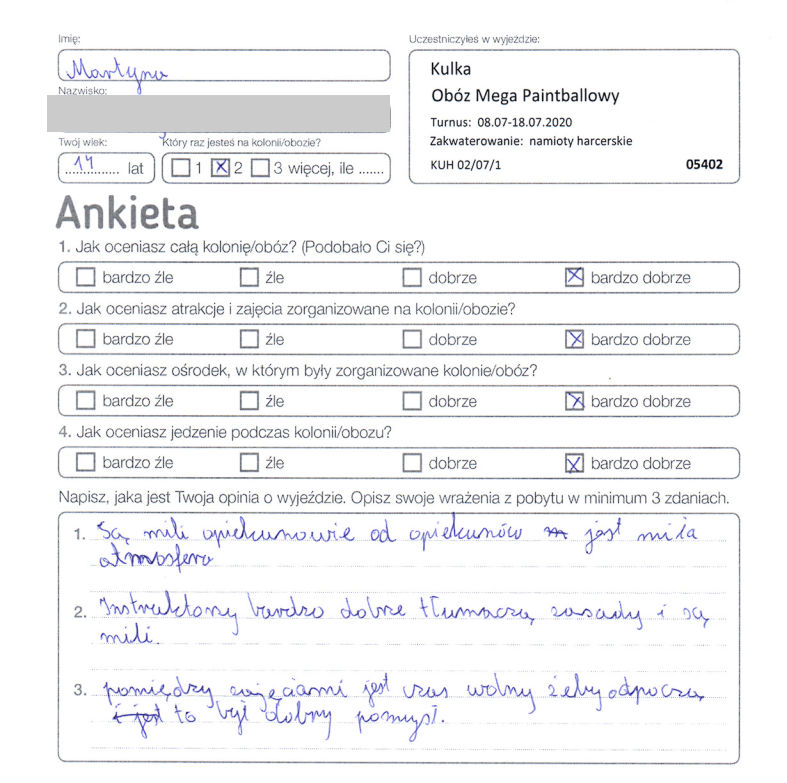 Imię:
Martyna
Nazwisko:
Twój wiek:
14 lat
Który raz jesteś na kolonii/obozie?
1 2 3 więcej, ile .......
Uczestniczyłeś w wyjeździe:
Kulka
Obóz Mega Paintballowy
Turnus: 08.07-18.07.2020
Zakwaterowanie: namioty harcerskie
KUH 02/07/1 05402
Ankieta
1. Jak oceniasz całą kolonię/obóz? (Podobało Ci się?)
bardzo źle źle dobrze bardzo dobrze
2. Jak oceniasz atrakcje i zajęcia zorganizowane na kolonii/obozie?
bardzo źle źle dobrze bardzo dobrze
3. Jak oceniasz ośrodek, w którym były zorganizowane kolonie/obóz?
bardzo źle źle dobrze bardzo dobrze
4. Jak oceniasz jedzenie podczas kolonii/obozu?
bardzo źle źle dobrze bardzo dobrze
Napisz, jaka jest Twoja opinia o wyjeździe. Opisz swoje wrażenia z pobytu w minimum 3 zdaniach.
1. Są mili opiekunowie od opiekunów jest miła
atmosfera
2. Instruktorzy bardzo dobrze tłumaczą zasady i są
mili.
3. pomiędzy zajęciami jest czas wolny żeby odpocząć
i jest to był dobry pomysł.